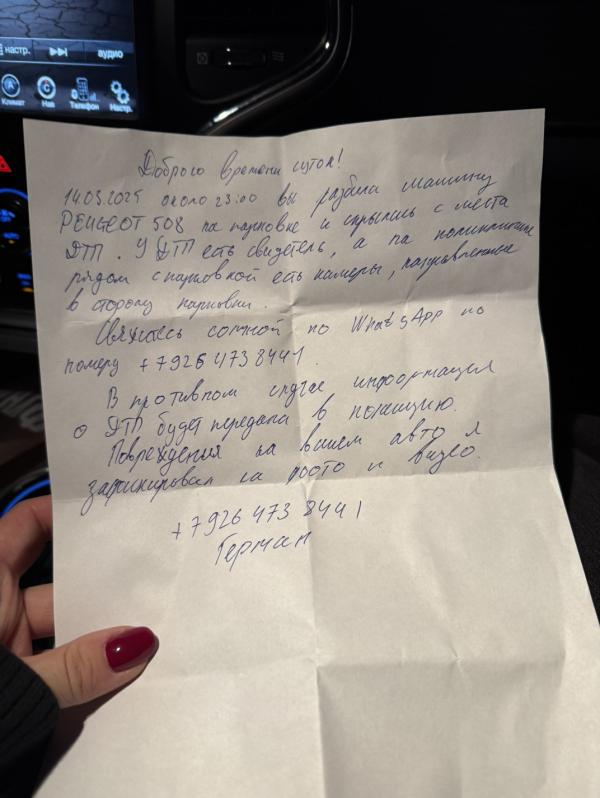 настр.
аудио
Климат
Нав
Телефон
Настр.
Доброго времени суток!
14.03.2025 около 23:00 вы разбили машину
PEUGEOT 508 на парковке и скрылись с места
ДТП. У ДТП есть свидетель, а на поликлинике
рядом с парковкой есть камеры, направленные
в сторону парковки.
Свяжитесь со мной по WhatsApp по
номеру +7926 473 8441.
В противном случае информация
о ДТП будет передана в полицию.
Повреждения на вашем авто я
зафиксировал на фото и видео.
+7926 473 8441
Герман